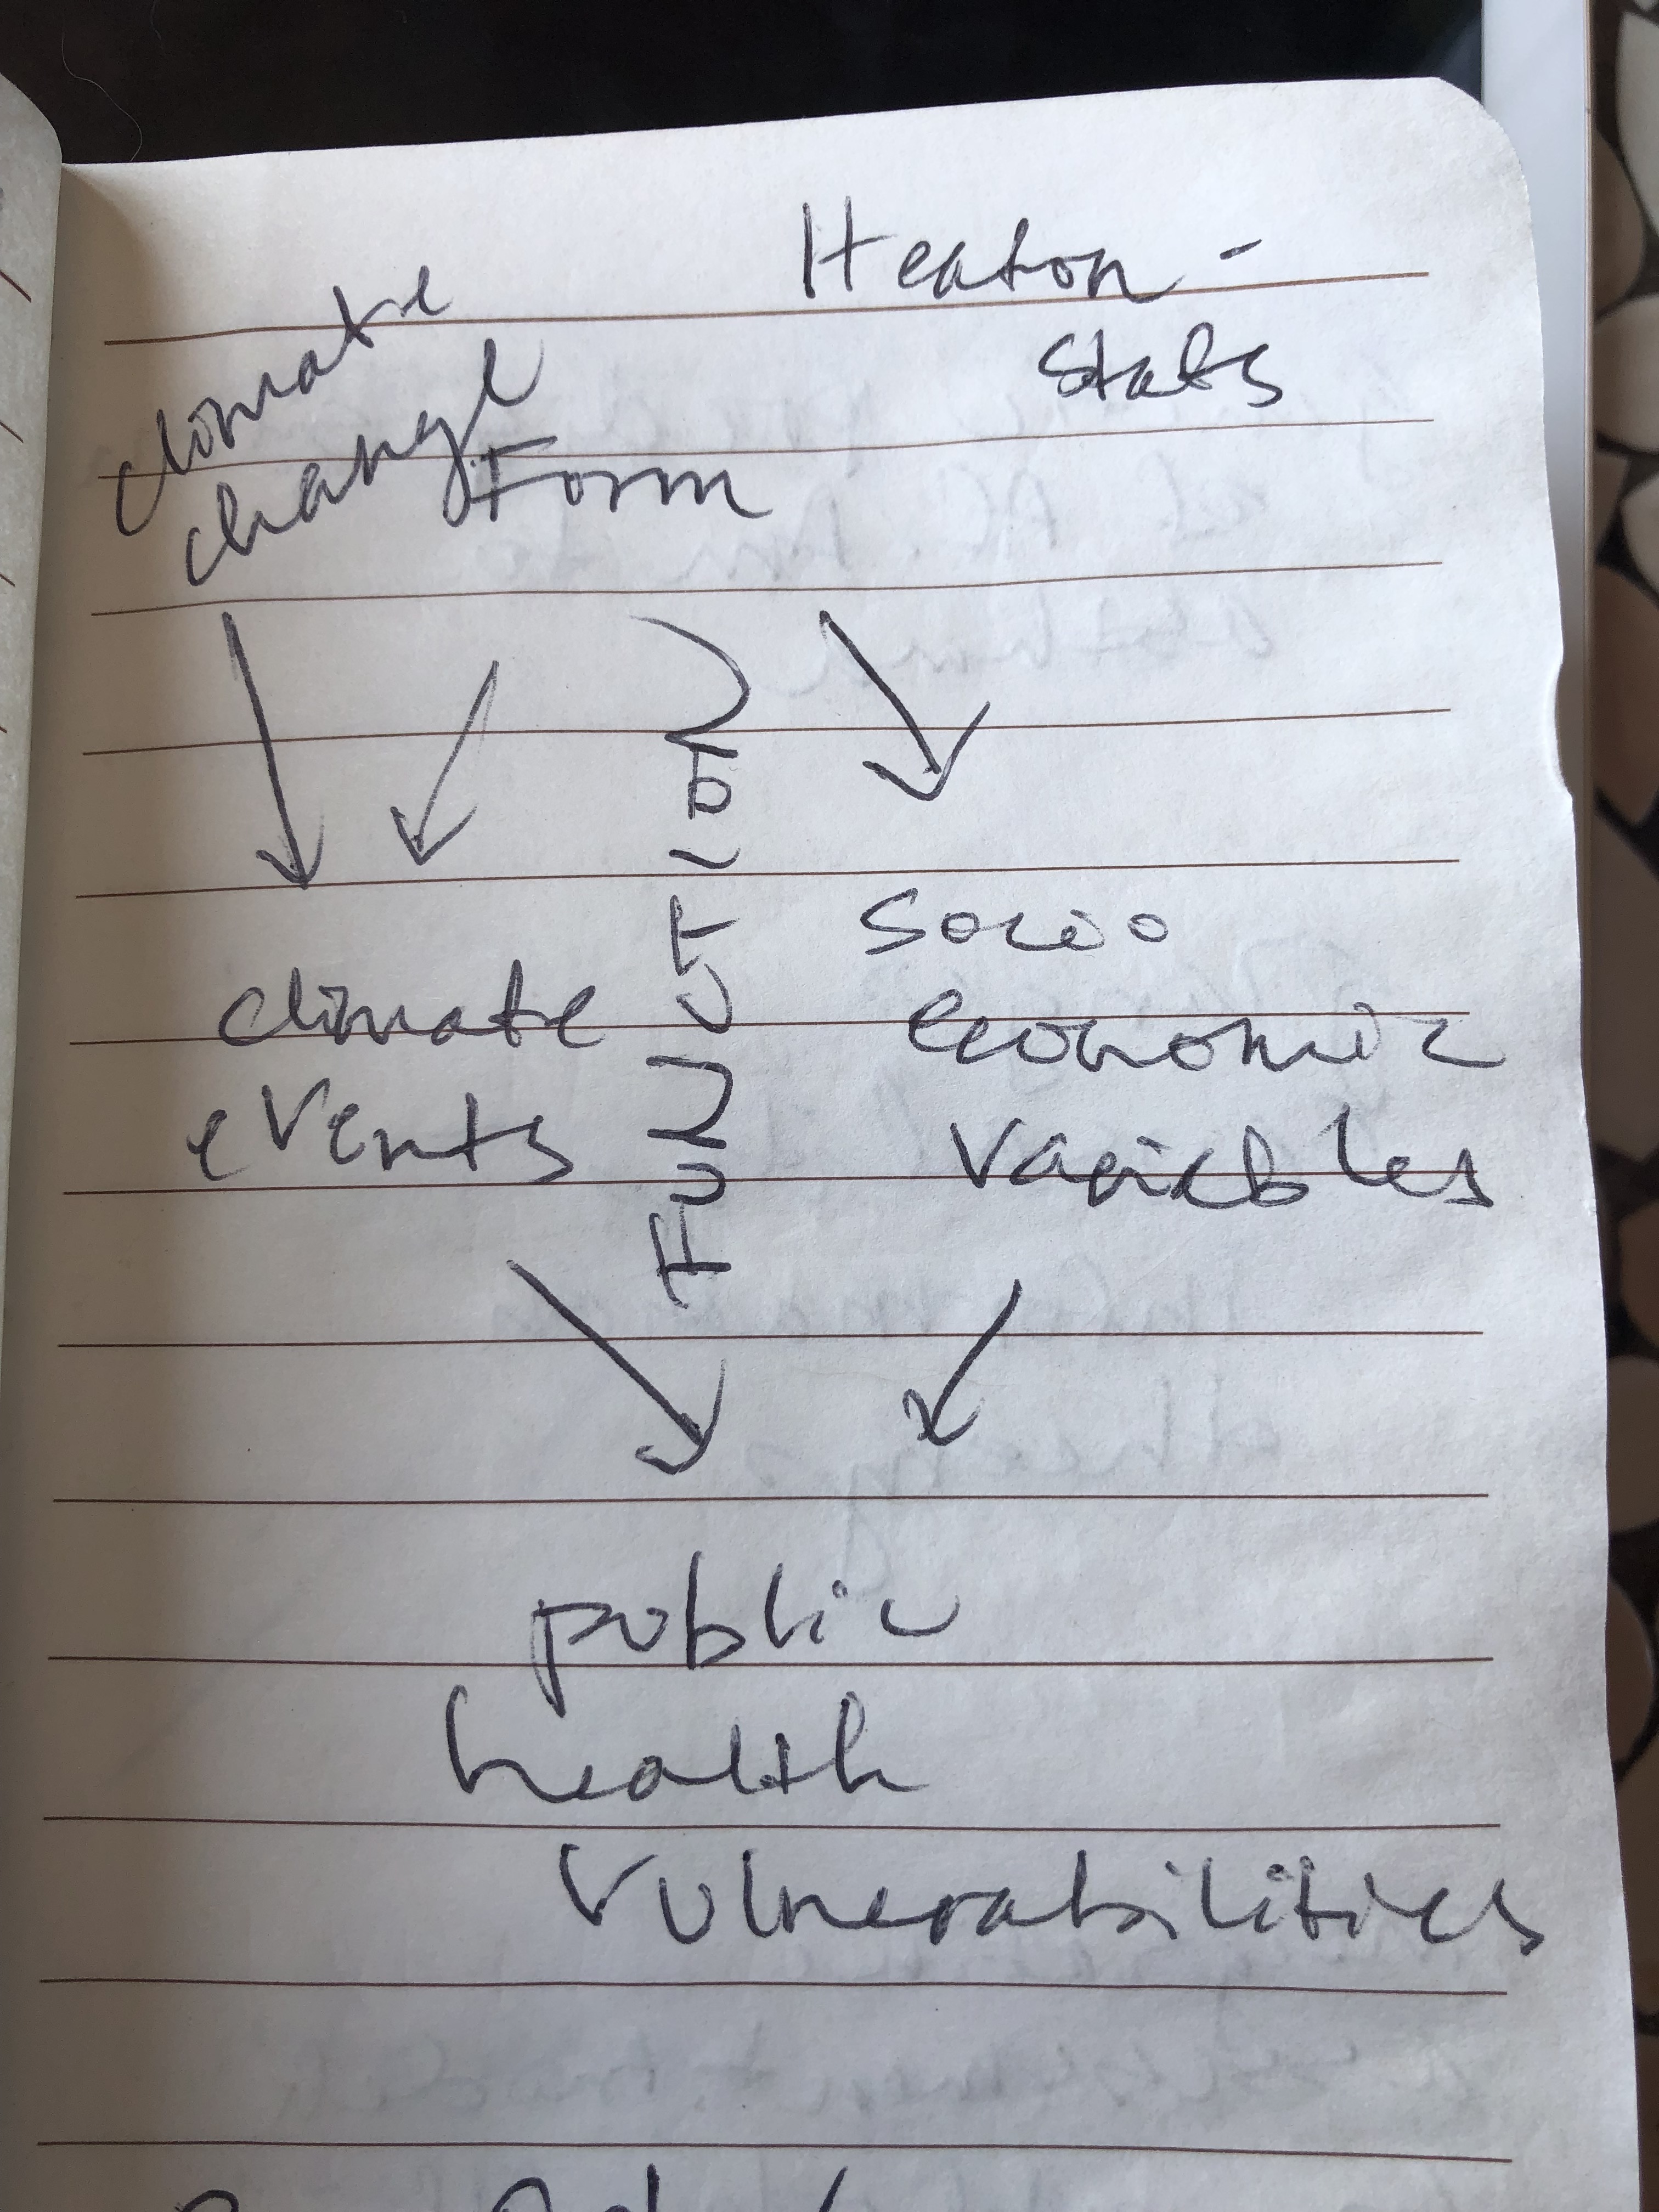 Heaton -
Stats
climate
change
Form
Function
climate
events
Socio
economic
variables
public
health
vulnerabilities